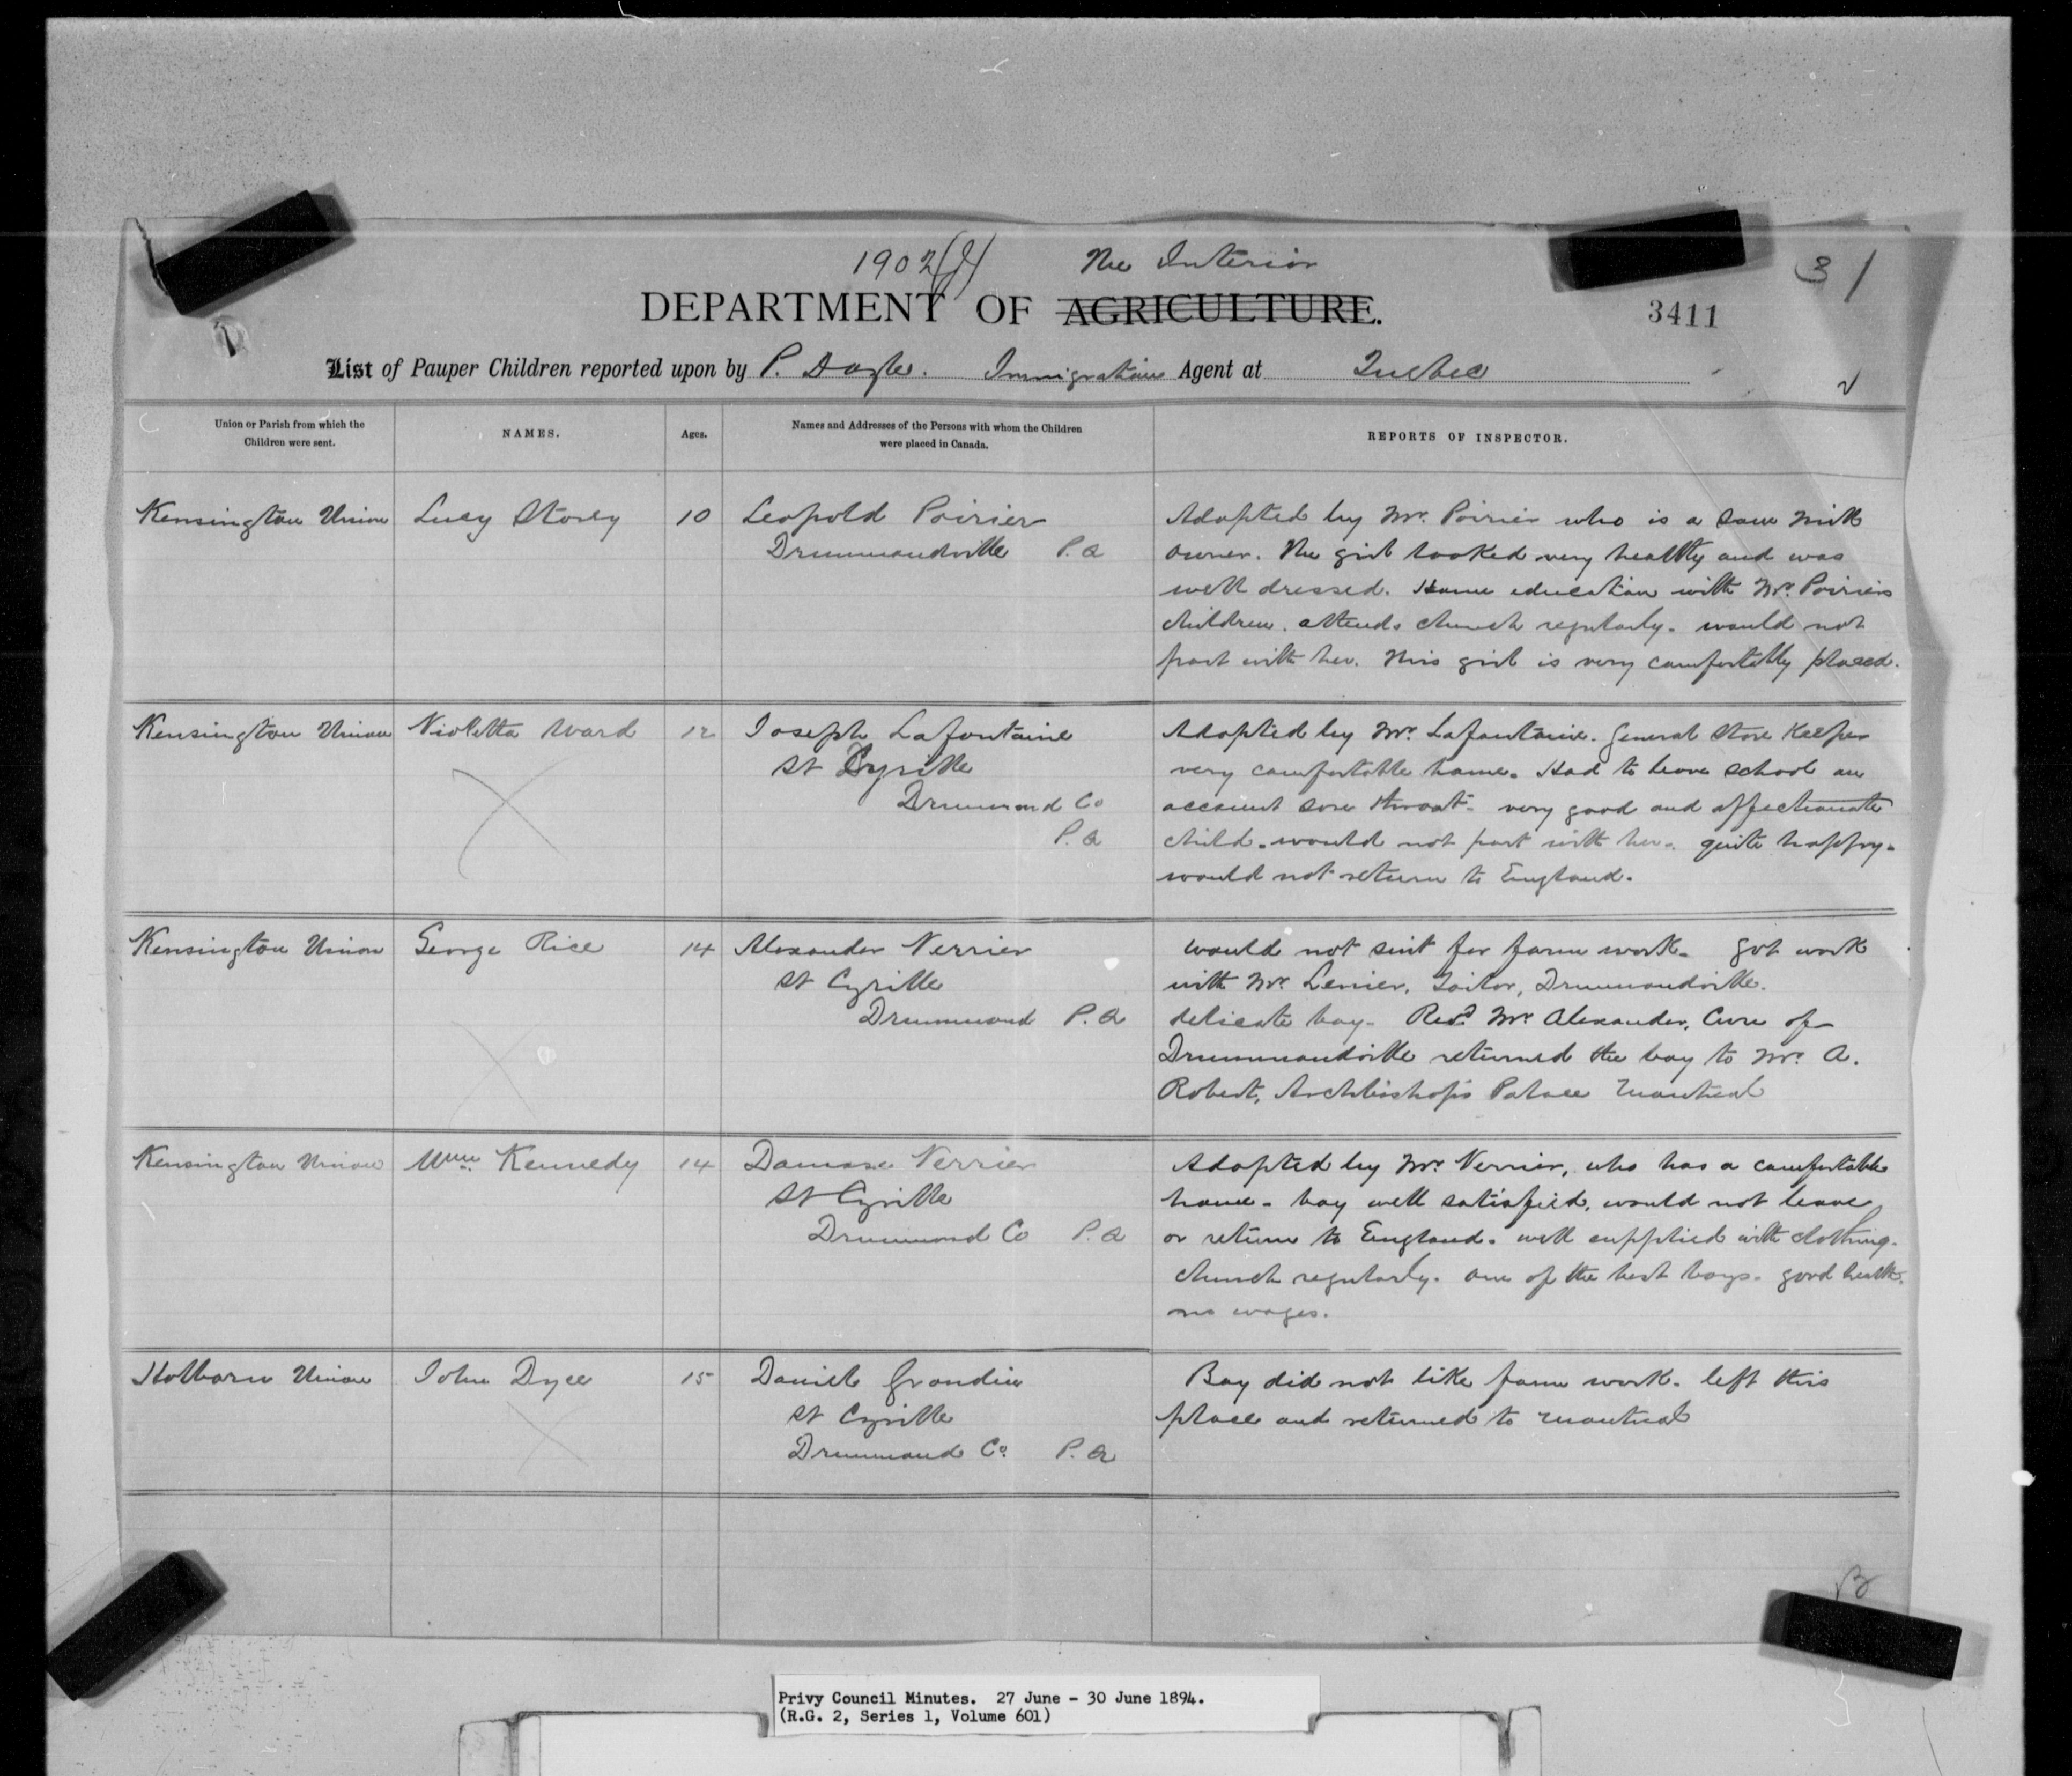 1902(J) The Interior 31
DEPARTMENT OF AGRICULTURE. 3411
List of Pauper Children reported upon by P. Doyle. Immigration Agent at Quebec
Union or Parish from which the Children were sent. NAMES. Ages. Names and Addresses of the Persons with whom the Children were placed in Canada. REPORTS OF INSPECTOR.
Kensington Union Lucy Storey 10 Leopold Poirier Adopted by Mr. Poirier who is a Saw Mill
Drummondville P.Q owner. The girl looked very healthy and was
well dressed. Home education with Mr. Poiriers
children. attends church regularly. would not
part with her. This girl is very comfortably placed.
Kensington Union Violetta Ward 12 Joseph Lafontaine Adopted by Mr. Lafontaine. General Store Keeper
St Cyrille very comfortable home. Had to leave school on
Drummond Co account sore throat. very good and affectionate
P.Q child. would not part with her. quite happy.
would not return to England.
Kensington Union George Rice 14 Alexander Verrier would not suit for farm work. got work
St Cyrille with Mr. Lemier, Tailor, Drummondville.
Drummond P.Q delicate boy. Revd. Mr. Alexander, Cure of
Drummondville returned the boy to Mr. A.
Robert, Archbishop's Palace Montreal
Kensington Union Wm. Kennedy 14 Damase Verrier Adopted by Mr. Verrier, who has a comfortable
St Cyrille home. boy well satisfied, would not leave
Drummond Co P.Q or return to England. well supplied with clothing.
church regularly. one of the best boys. good health.
no wages.
Holborn Union John Dyce 15 Daniel Grondin Boy did not like farm work. left this
St Cyrille place and returned to Montreal
Drummond Co. P.Q
Privy Council Minutes. 27 June - 30 June 1894.
(R.G. 2, Series 1, Volume 601)